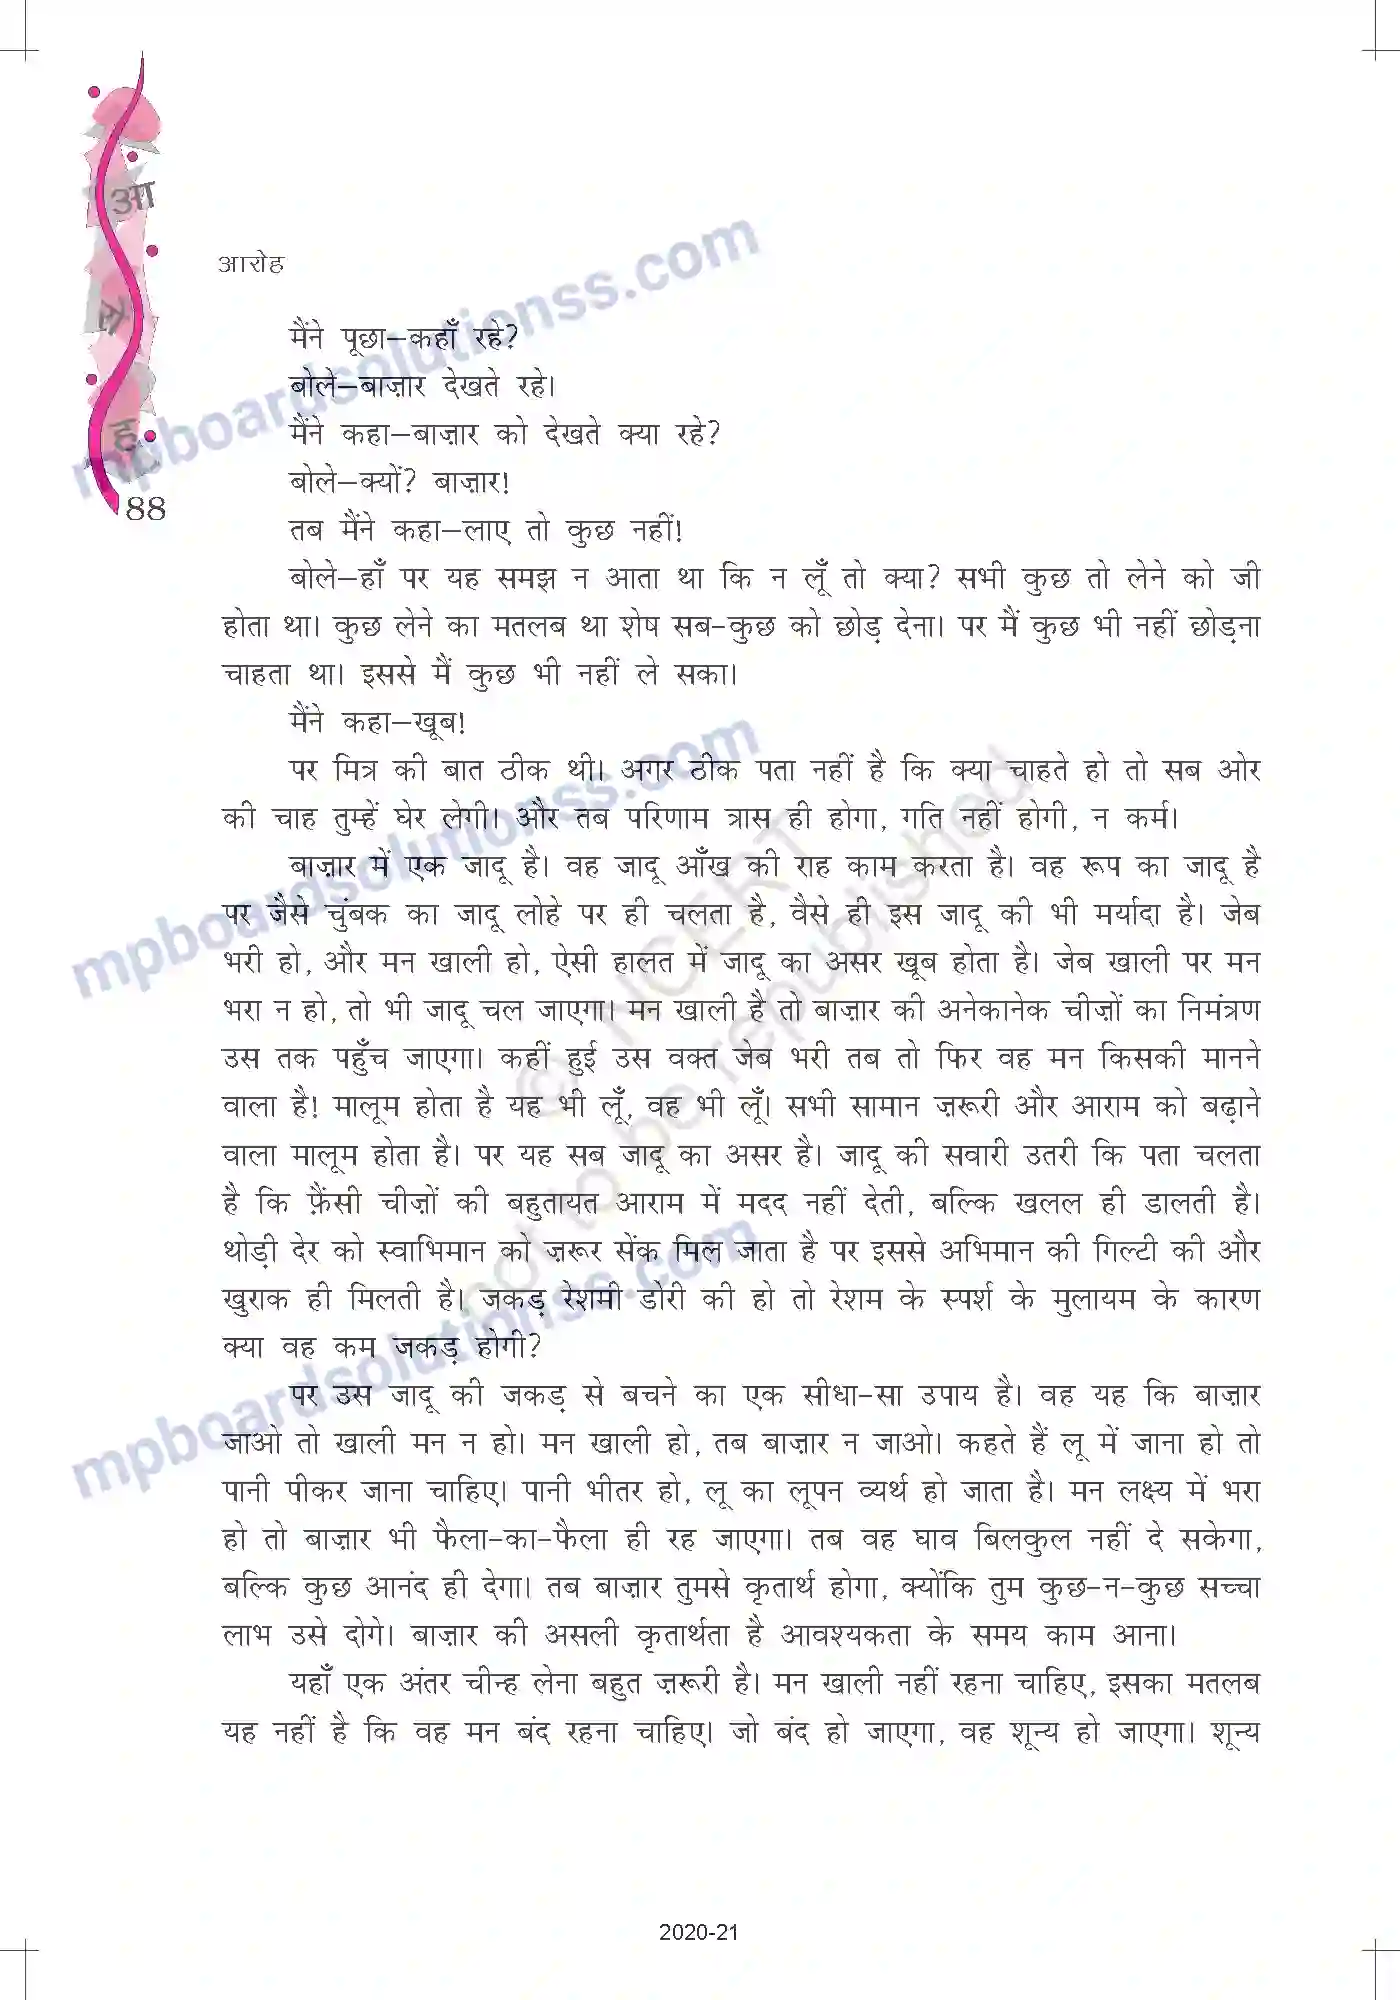 आ
रो
ह
88
आरोह
मैंने पूछा—कहाँ रहे?
बोले—बाज़ार देखते रहे।
मैंने कहा—बाज़ार को देखते क्या रहे?
बोले—क्यों? बाज़ार!
तब मैंने कहा—लाए तो कुछ नहीं!
बोले—हाँ पर यह समझ न आता था कि न लूँ तो क्या? सभी कुछ तो लेने को जी
होता था। कुछ लेने का मतलब था शेष सब-कुछ को छोड़ देना। पर मैं कुछ भी नहीं छोड़ना
चाहता था। इससे मैं कुछ भी नहीं ले सका।
मैंने कहा—खूब!
पर मित्र की बात ठीक थी। अगर ठीक पता नहीं है कि क्या चाहते हो तो सब ओर
की चाह तुम्हें घेर लेगी। और तब परिणाम त्रास ही होगा, गति नहीं होगी, न कर्म।
बाज़ार में एक जादू है। वह जादू आँख की राह काम करता है। वह रूप का जादू है
पर जैसे चुंबक का जादू लोहे पर ही चलता है, वैसे ही इस जादू की भी मर्यादा है। जेब
भरी हो, और मन खाली हो, ऐसी हालत में जादू का असर खूब होता है। जेब खाली पर मन
भरा न हो, तो भी जादू चल जाएगा। मन खाली है तो बाज़ार की अनेकानेक चीज़ों का निमंत्रण
उस तक पहुँच जाएगा। कहीं हुई उस वक्त जेब भरी तब तो फिर वह मन किसकी मानने
वाला है! मालूम होता है यह भी लूँ, वह भी लूँ। सभी सामान ज़रूरी और आराम को बढ़ाने
वाला मालूम होता है। पर यह सब जादू का असर है। जादू की सवारी उतरी कि पता चलता
है कि फ़ैंसी चीज़ों की बहुतायत आराम में मदद नहीं देती, बल्कि खलल ही डालती है।
थोड़ी देर को स्वाभिमान को ज़रूर सेंक मिल जाता है पर इससे अभिमान की गिल्टी की और
खुराक ही मिलती है। जकड़ रेशमी डोरी की हो तो रेशम के स्पर्श के मुलायम के कारण
क्या वह कम जकड़ होगी?
पर उस जादू की जकड़ से बचने का एक सीधा-सा उपाय है। वह यह कि बाज़ार
जाओ तो खाली मन न हो। मन खाली हो, तब बाज़ार न जाओ। कहते हैं लू में जाना हो तो
पानी पीकर जाना चाहिए। पानी भीतर हो, लू का लूपन व्यर्थ हो जाता है। मन लक्ष्य में भरा
हो तो बाज़ार भी फैला-का-फैला ही रह जाएगा। तब वह घाव बिलकुल नहीं दे सकेगा,
बल्कि कुछ आनंद ही देगा। तब बाज़ार तुमसे कृतार्थ होगा, क्योंकि तुम कुछ-न-कुछ सच्चा
लाभ उसे दोगे। बाज़ार की असली कृतार्थता है आवश्यकता के समय काम आना।
यहाँ एक अंतर चीन्ह लेना बहुत ज़रूरी है। मन खाली नहीं रहना चाहिए, इसका मतलब
यह नहीं है कि वह मन बंद रहना चाहिए। जो बंद हो जाएगा, वह शून्य हो जाएगा। शून्य
2020-21
mpboardsolutionss.com
mpboardsolutionss.com
mpboardsolutionss.com
© NCERT
not to be republished